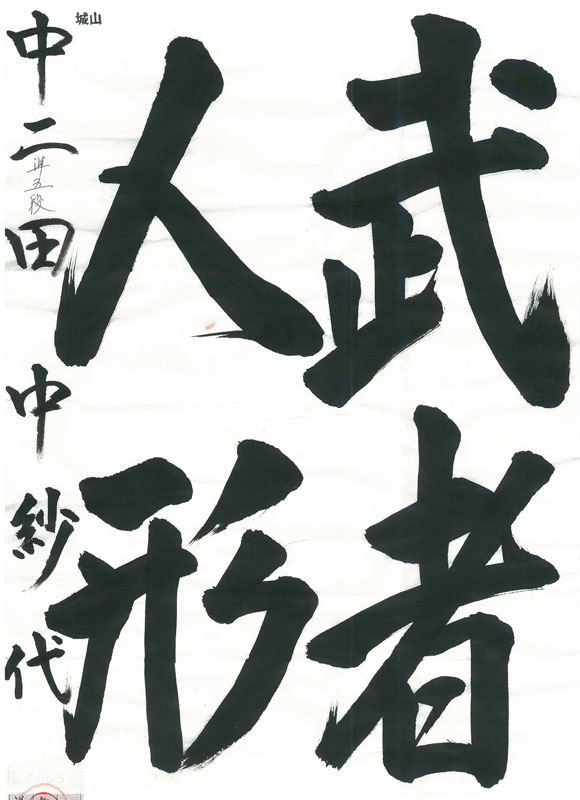 武者
人形
中二 田中紗代
準五段
城山